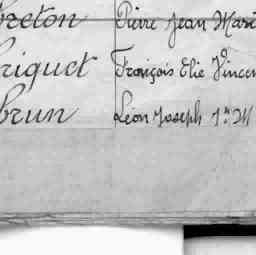 breton Pierre Jean Marie
riquet François Elie Vincen
brun Léon Joseph